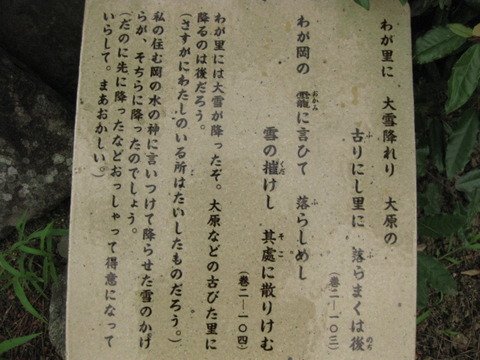 わが里に　大雪降れり　大原の
古りにし里に　落らまくは後
（巻二―一〇三）
わが岡の　龗に言ひて　落らしめし
雪の摧けし　其處に散りけむ
（巻二―一〇四）
わが里には大雪が降ったぞ。大原などの古びた里に
降るのは後だろう。
（さすがにわたしのいる所はたいしたものだろう。）
私の住む岡の水の神に言いつけて降らせた雪のかけ
らが、そちらに降ったのでしょう。
（だのに先に降ったなどおっしゃって得意になって
いらして。まあおかしい。）